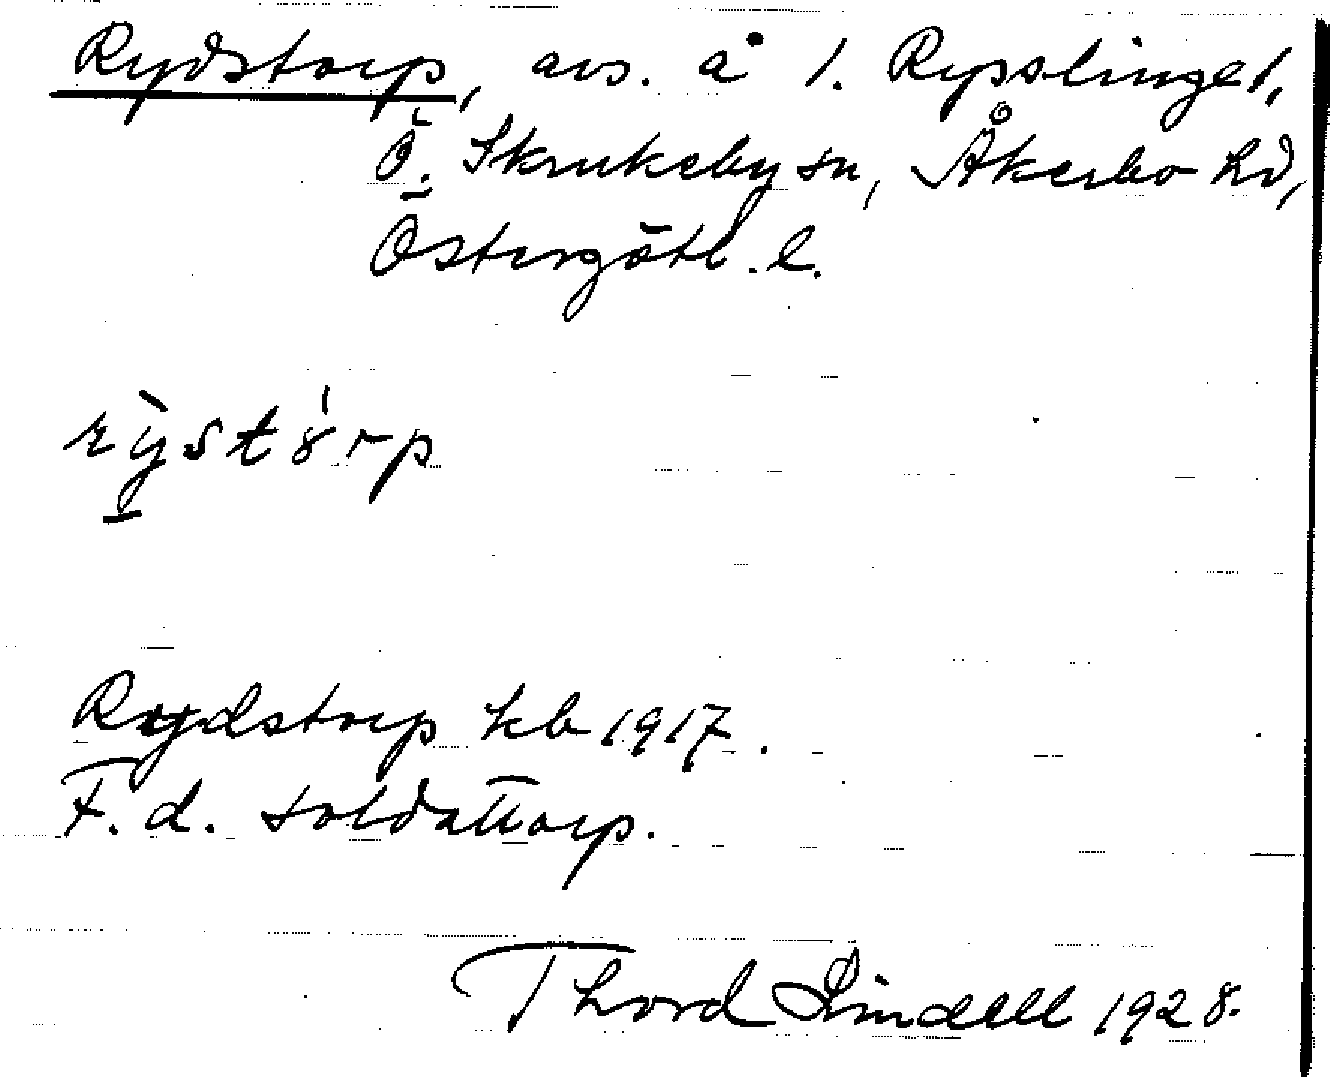 Rydstorp, avs. å 1. Rysslinge1,
Ö. Skrukeby sn, Åkerbo hd,
Östergötl. l.
rỳstórp
Rydstorp kb 1917.
F. d. soldattorp.
Thord Lindell 1928.